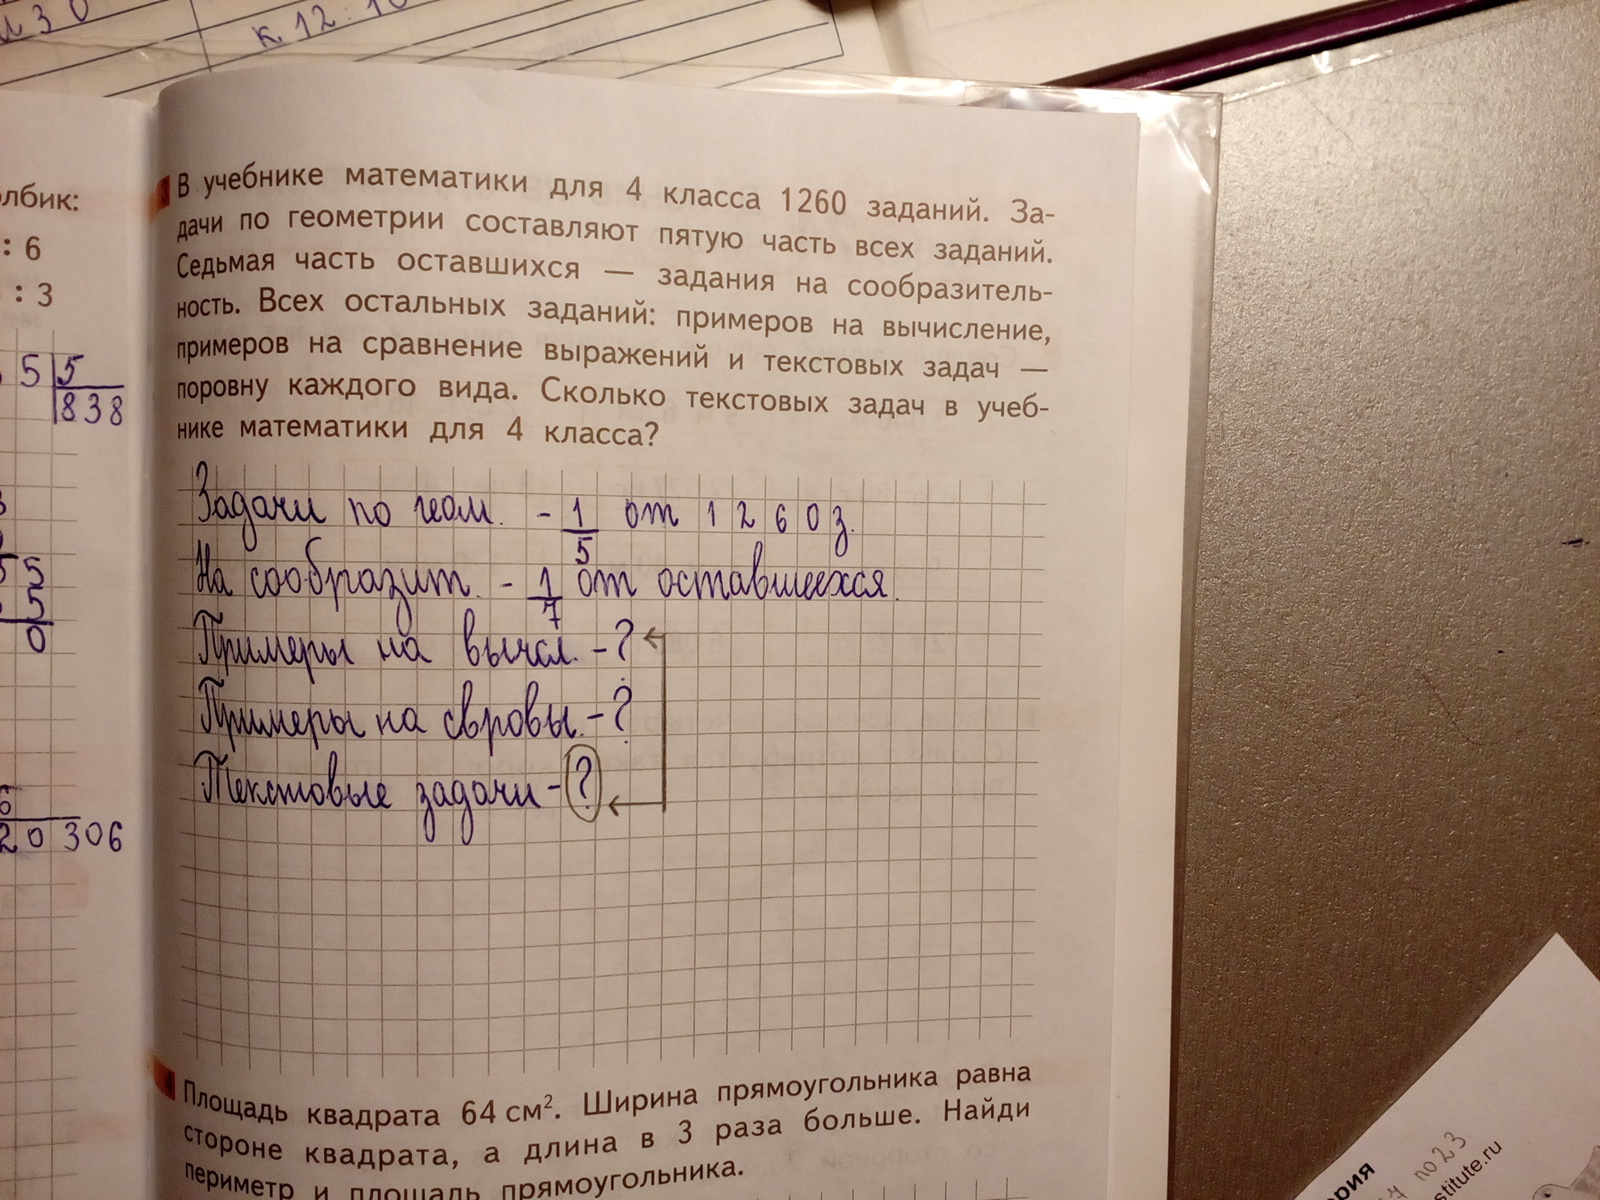 к. 12 : 10
олбик:
: 6
: 3
5 5
838
5 5
5
0
20 306
В учебнике математики для 4 класса 1260 заданий. За-
дачи по геометрии составляют пятую часть всех заданий.
Седьмая часть оставшихся — задания на сообразитель-
ность. Всех остальных заданий: примеров на вычисление,
примеров на сравнение выражений и текстовых задач —
поровну каждого вида. Сколько текстовых задач в учеб-
нике математики для 4 класса?
Задачи по геом. - 1/5 от 1260 з.
На сообразит. - 1/7 от оставшихся.
Примеры на вычсл. - ?
Примеры на свровы. - ?
Текстовые задачи - ?
4 Площадь квадрата 64 см². Ширина прямоугольника равна
стороне квадрата, а длина в 3 раза больше. Найди
периметр и площадь прямоугольника.
рия
по 23
stitute.ru